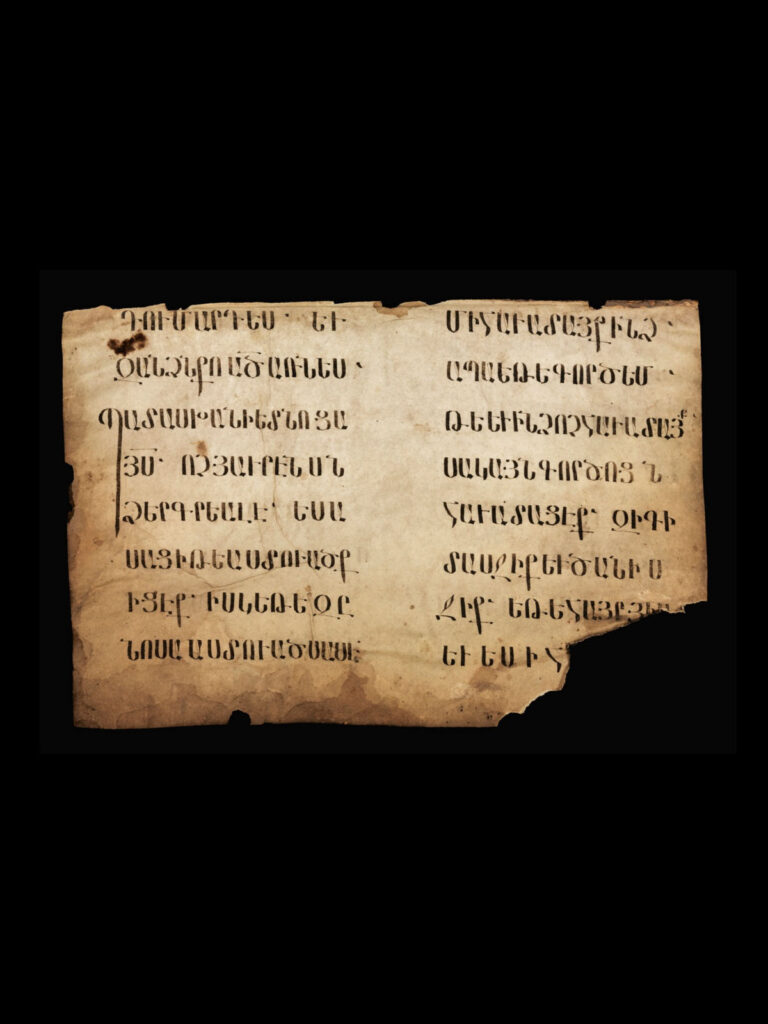 ԴՈՒՄԱՐԴԵՍ· ԵՒ
ԶԱՆՁՆՔՈԱԾԱՌՆԵՍ·
ՊԱՏԱՍԽԱՆԻԵՏՆՈՑԱ
ՅՍ· ՈՉՅԱՒՐԷՆՍՆ
ՁԵՐԳՐԵԱԼԷ· ԵՍԱ
ՍԱՑԻԹԵԱՍՏՈՒԱԾՔ
ԻՑԷՔ· ԻՍԿԵԹԵԶԸ
ՆՈՍԱԱՍՏՈՒԱԾՍԱՑ
ՄԻՀԱՒԱՏԱՅՔԻՆՁ·
ԱՊԱԵԹԵԳՈՐԾԵՄ·
ԹԵԵՒԻՆՁՈՉՀԱՒԱՏԱՅՔ
ՍԱԿԱՅՆԳՈՐԾՈՑՆ
ՀԱՒԱՏԱՑԷՔ· ԶԻԳԻ
ՏԱՍՋԻՔԵՒԾԱՆԻՍ
ՋԻՔ· ԵԹԵՀԱՅՐՅԻՍ
ԵՒԵՍԻՀ